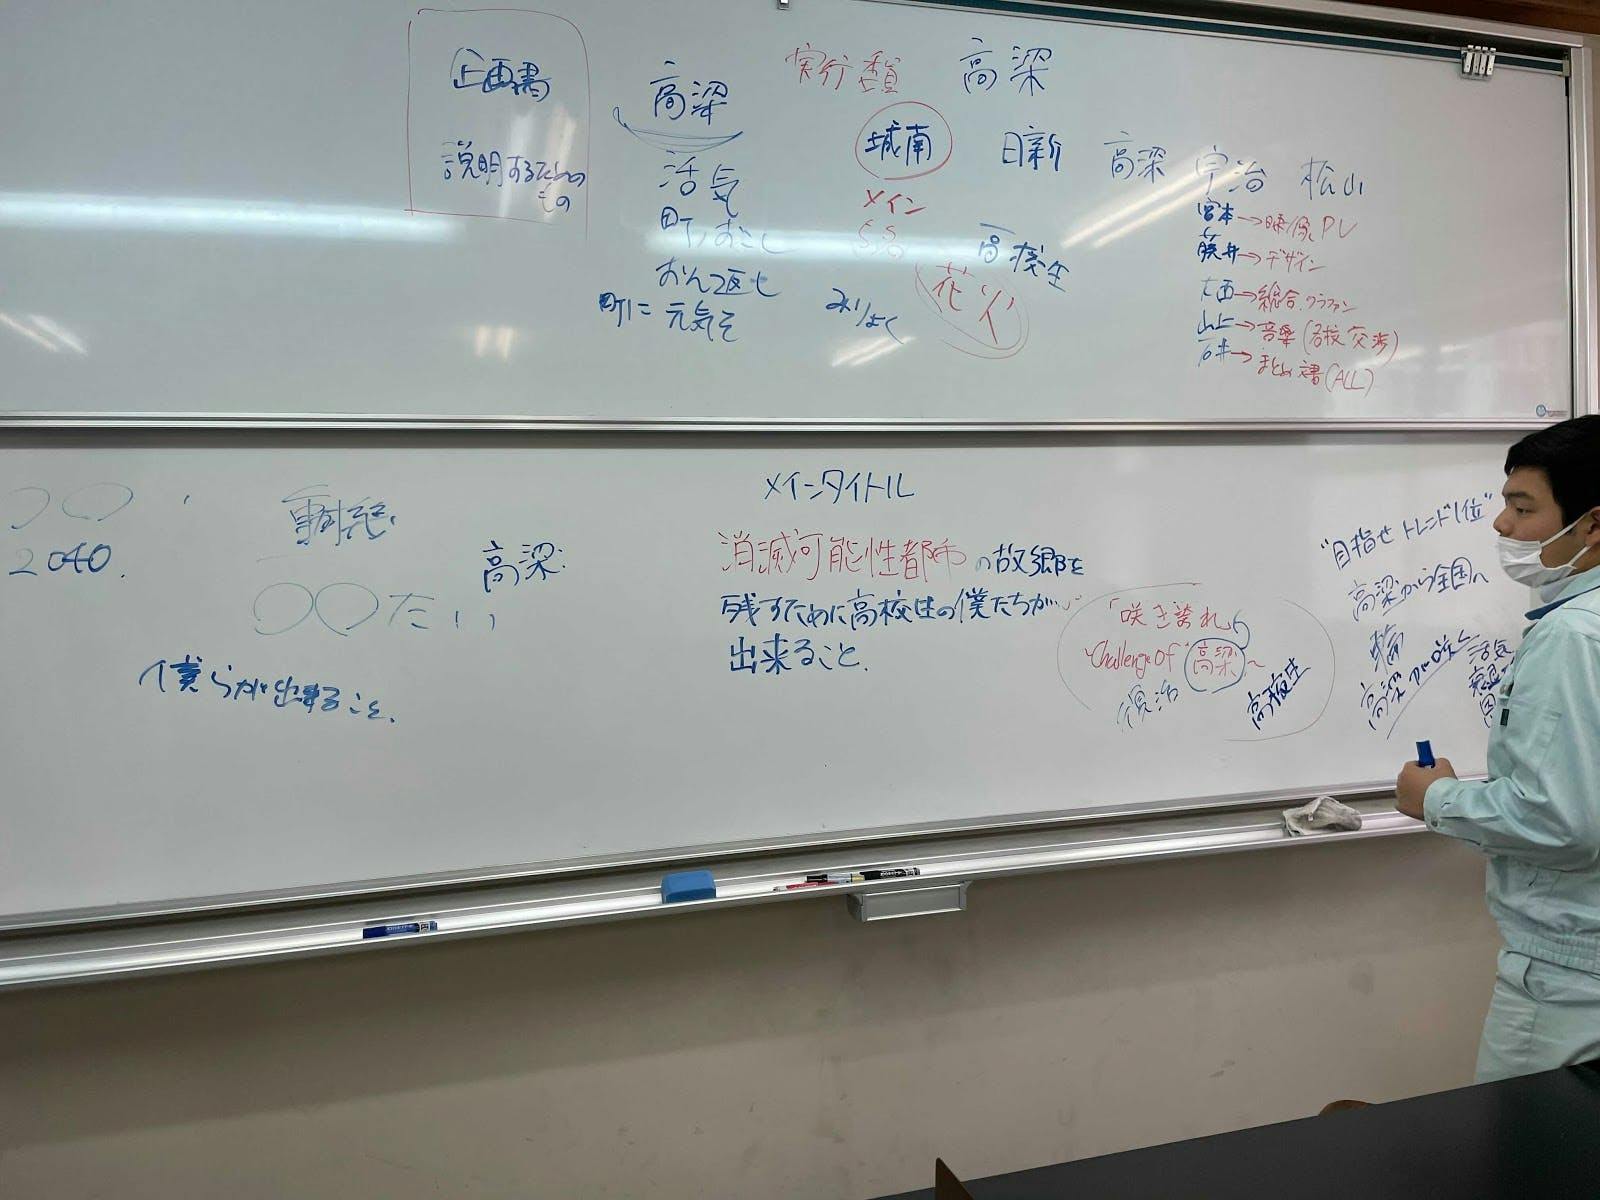 企画書
説明するための
もの
高梁
活気
町おこし
おん返し
町に元気を
実行委員
高梁
城南
日新
高梁
宇治
松山
メイン
高校生
花火
みりょく
宮本→映像PV
藤井→デザイン
大西→総合.クラファン
山上→音楽(各校交渉)
石井→まとめ書(ALL)
2040.
高梁:
〇〇たい
僕らが出来ること.
メインタイトル
消滅可能性都市の故郷を
残すために高校生の僕たちが
出来ること.
「咲き誇れ」
Challenge Of 高梁~
復活
高校生
"目指せトレンド1位"
高梁から全国へ
輪
高梁が咲く
活気